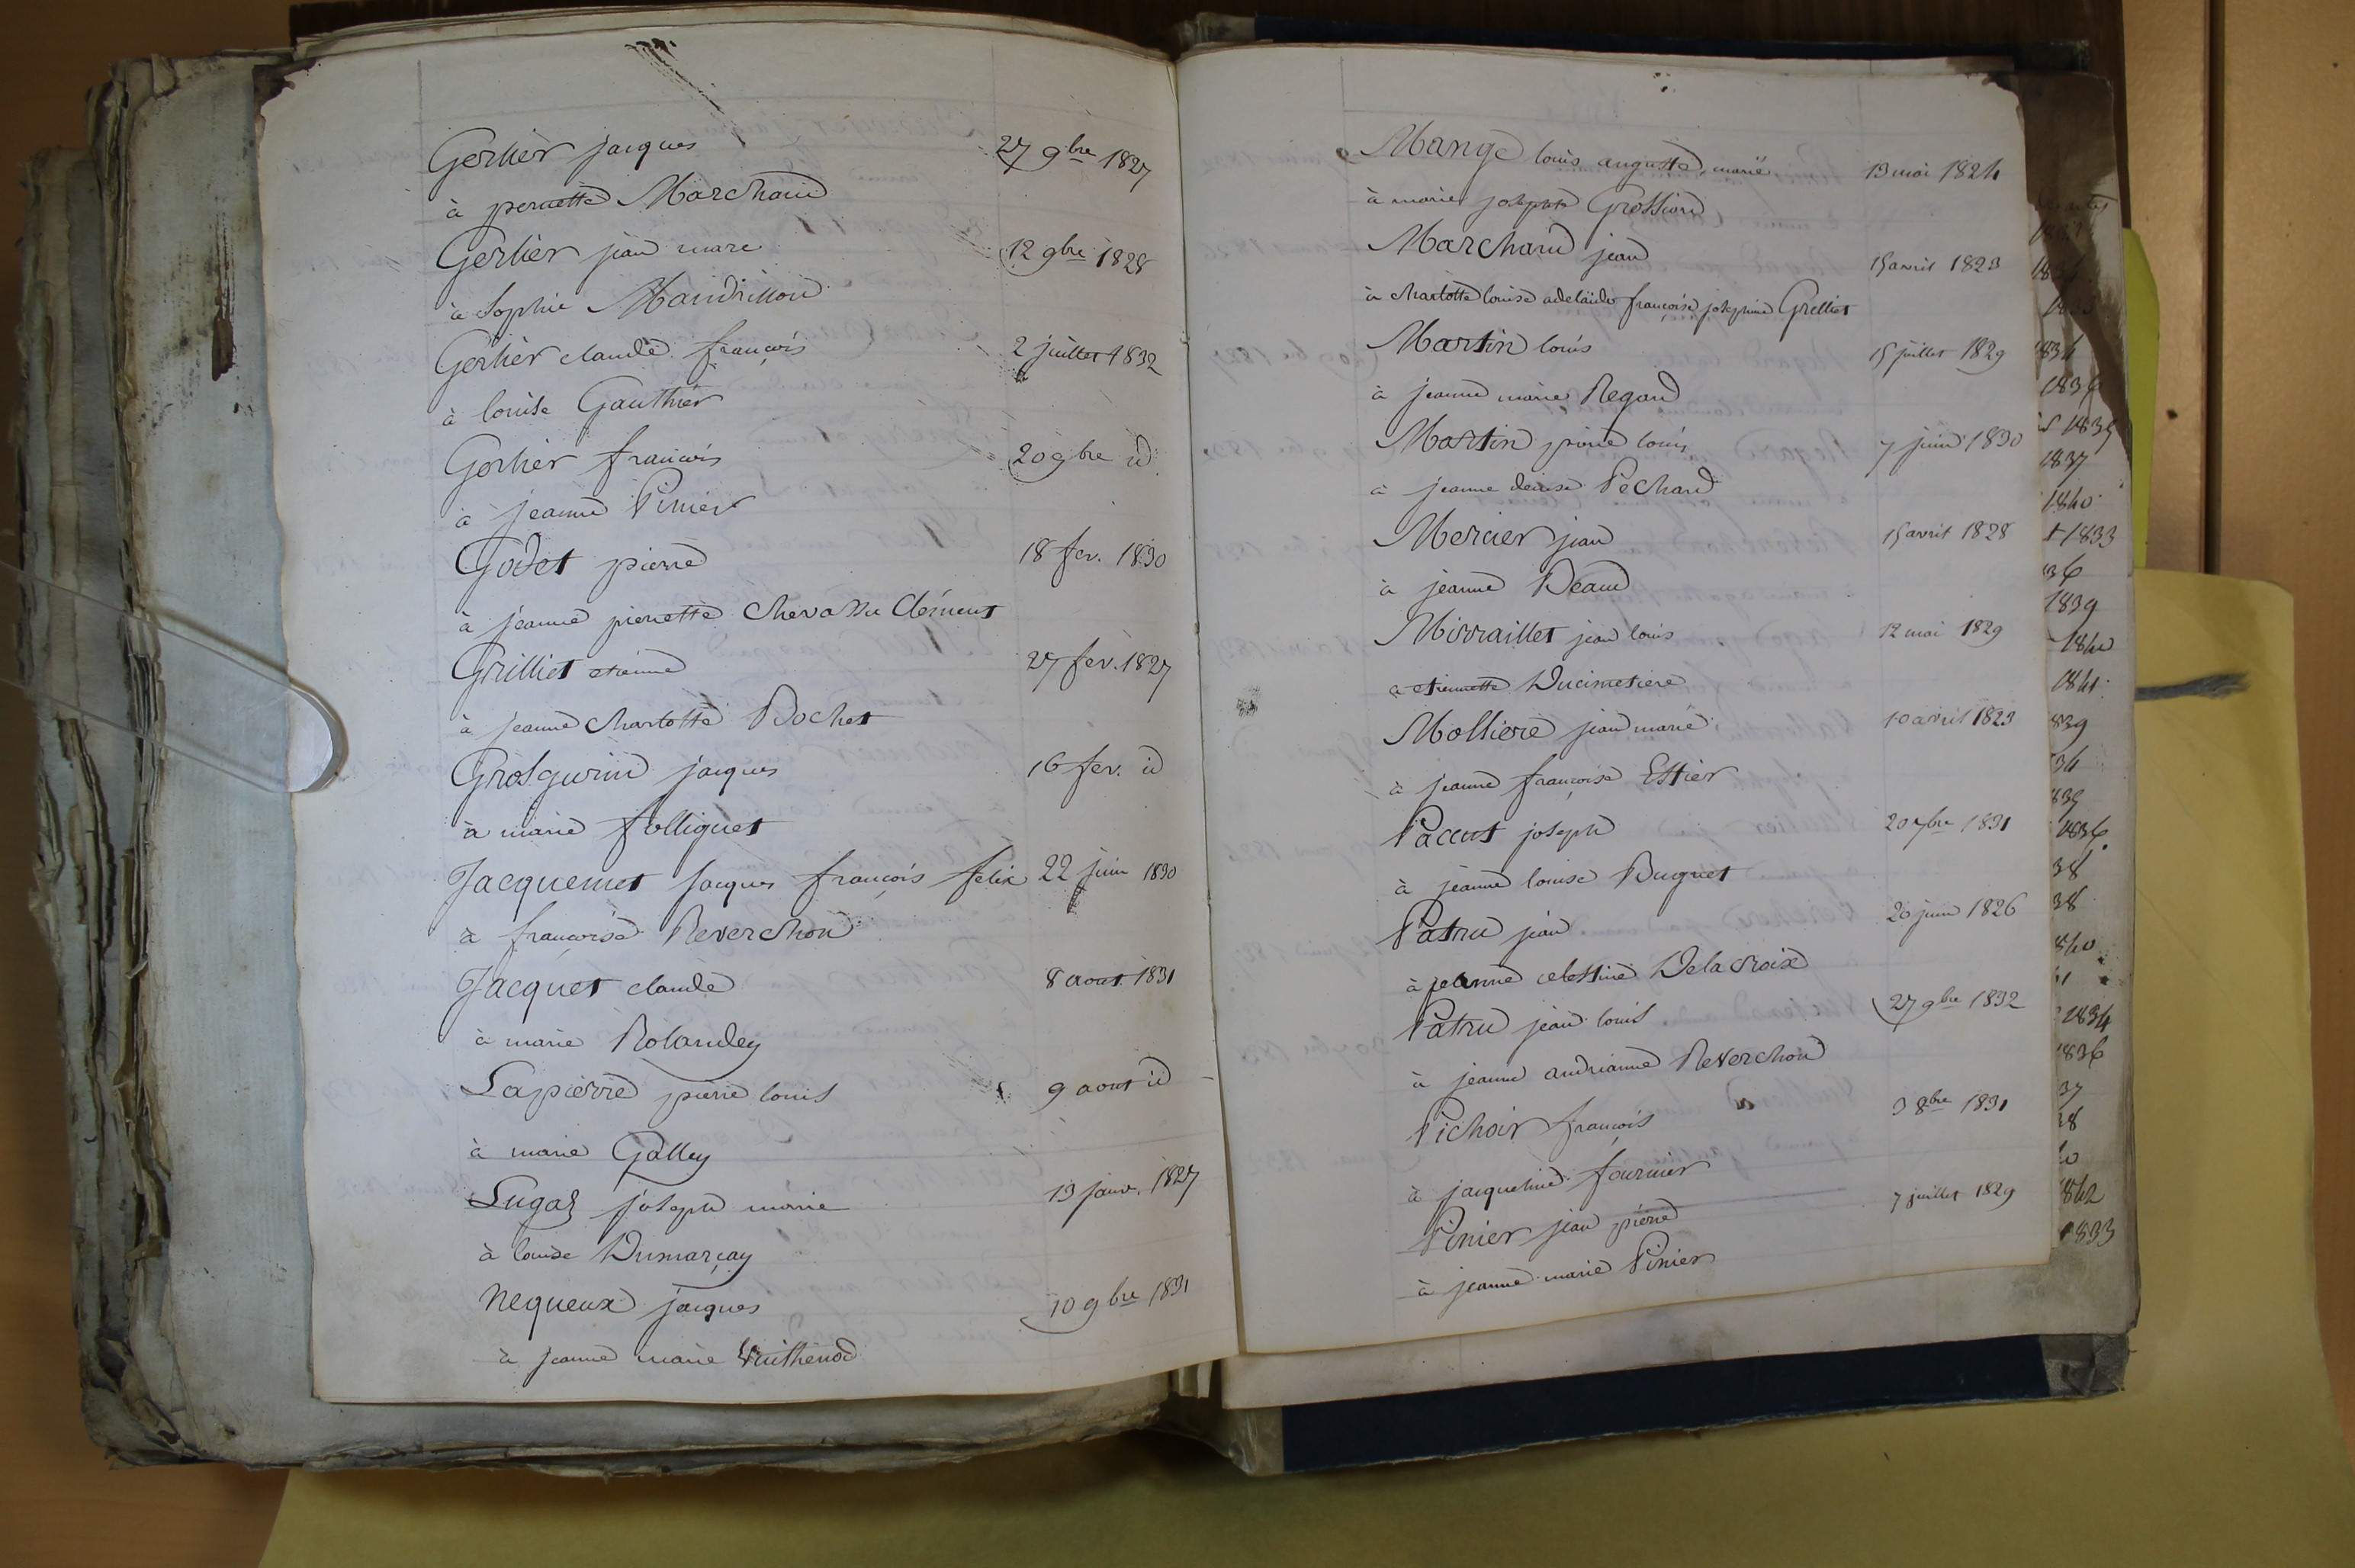 Gerlier jacques 27 9bre 1827
à pernette Marchand
Gerlier jean marc 12 9bre 1828
à Sophie Mandrillon
Gerlier claude françois 2 juillet 1832
à louise Gauthier
Gerlier françois 20 9bre id
à jeanne Pinier
Godet pierre 18 fev. 1830
à jeanne pierrette Chevassu Clément
Grilliet etienne 27 fev. 1827
à jeanne charlotte Bochet
Grosgurin jacques 16 fev. id
à marie folliguet
Jacquemet jacques françois felix 22 juin 1830
à françoise Reverchon
Jacquet claude 8 aout 1831
à marie Rolandey
Lapierre pierre louis 9 aout id
à marie Galley
Lugaz joseph marie 13 janv. 1827
à louise Dumarçay
Nequeux jacques 10 9bre 1831
à jeanne marie Vuithenod
Mange louis auguste marie 13 mai 1824
à marie joseph Grossiord
Marchand jean 15 avril 1823
à charlotte louise adelaide françoise josephine Grilliet
Martin louis 15 juillet 1829
à jeanne marie Regard
Martin pierre louis 7 juin 1830
à jeanne denise Pechard
Mercier jean 15 avril 1828
à jeanne Deaud
Mirraillet jean louis 12 mai 1829
à etiennette Ducimetiere
Molliere jean marie 10 avril 1823
à jeanne françoise Estier
Paccut joseph 20 7bre 1831
à jeanne louise Buguet
Patru jean 20 juin 1826
à jeanne celestine Delacroix
Patru jean louis 27 9bre 1832
à jeanne andrianne Reverchon
Pichoir françois 3 8bre 1831
à jacqueline fournier
Pinier jean pierre 7 juillet 1829
à jeanne marie Pinier
1837
1840
1833
36
1839
1840
1841
839
34
839
1836
38
38
840
1834
1836
37
38
842
1833